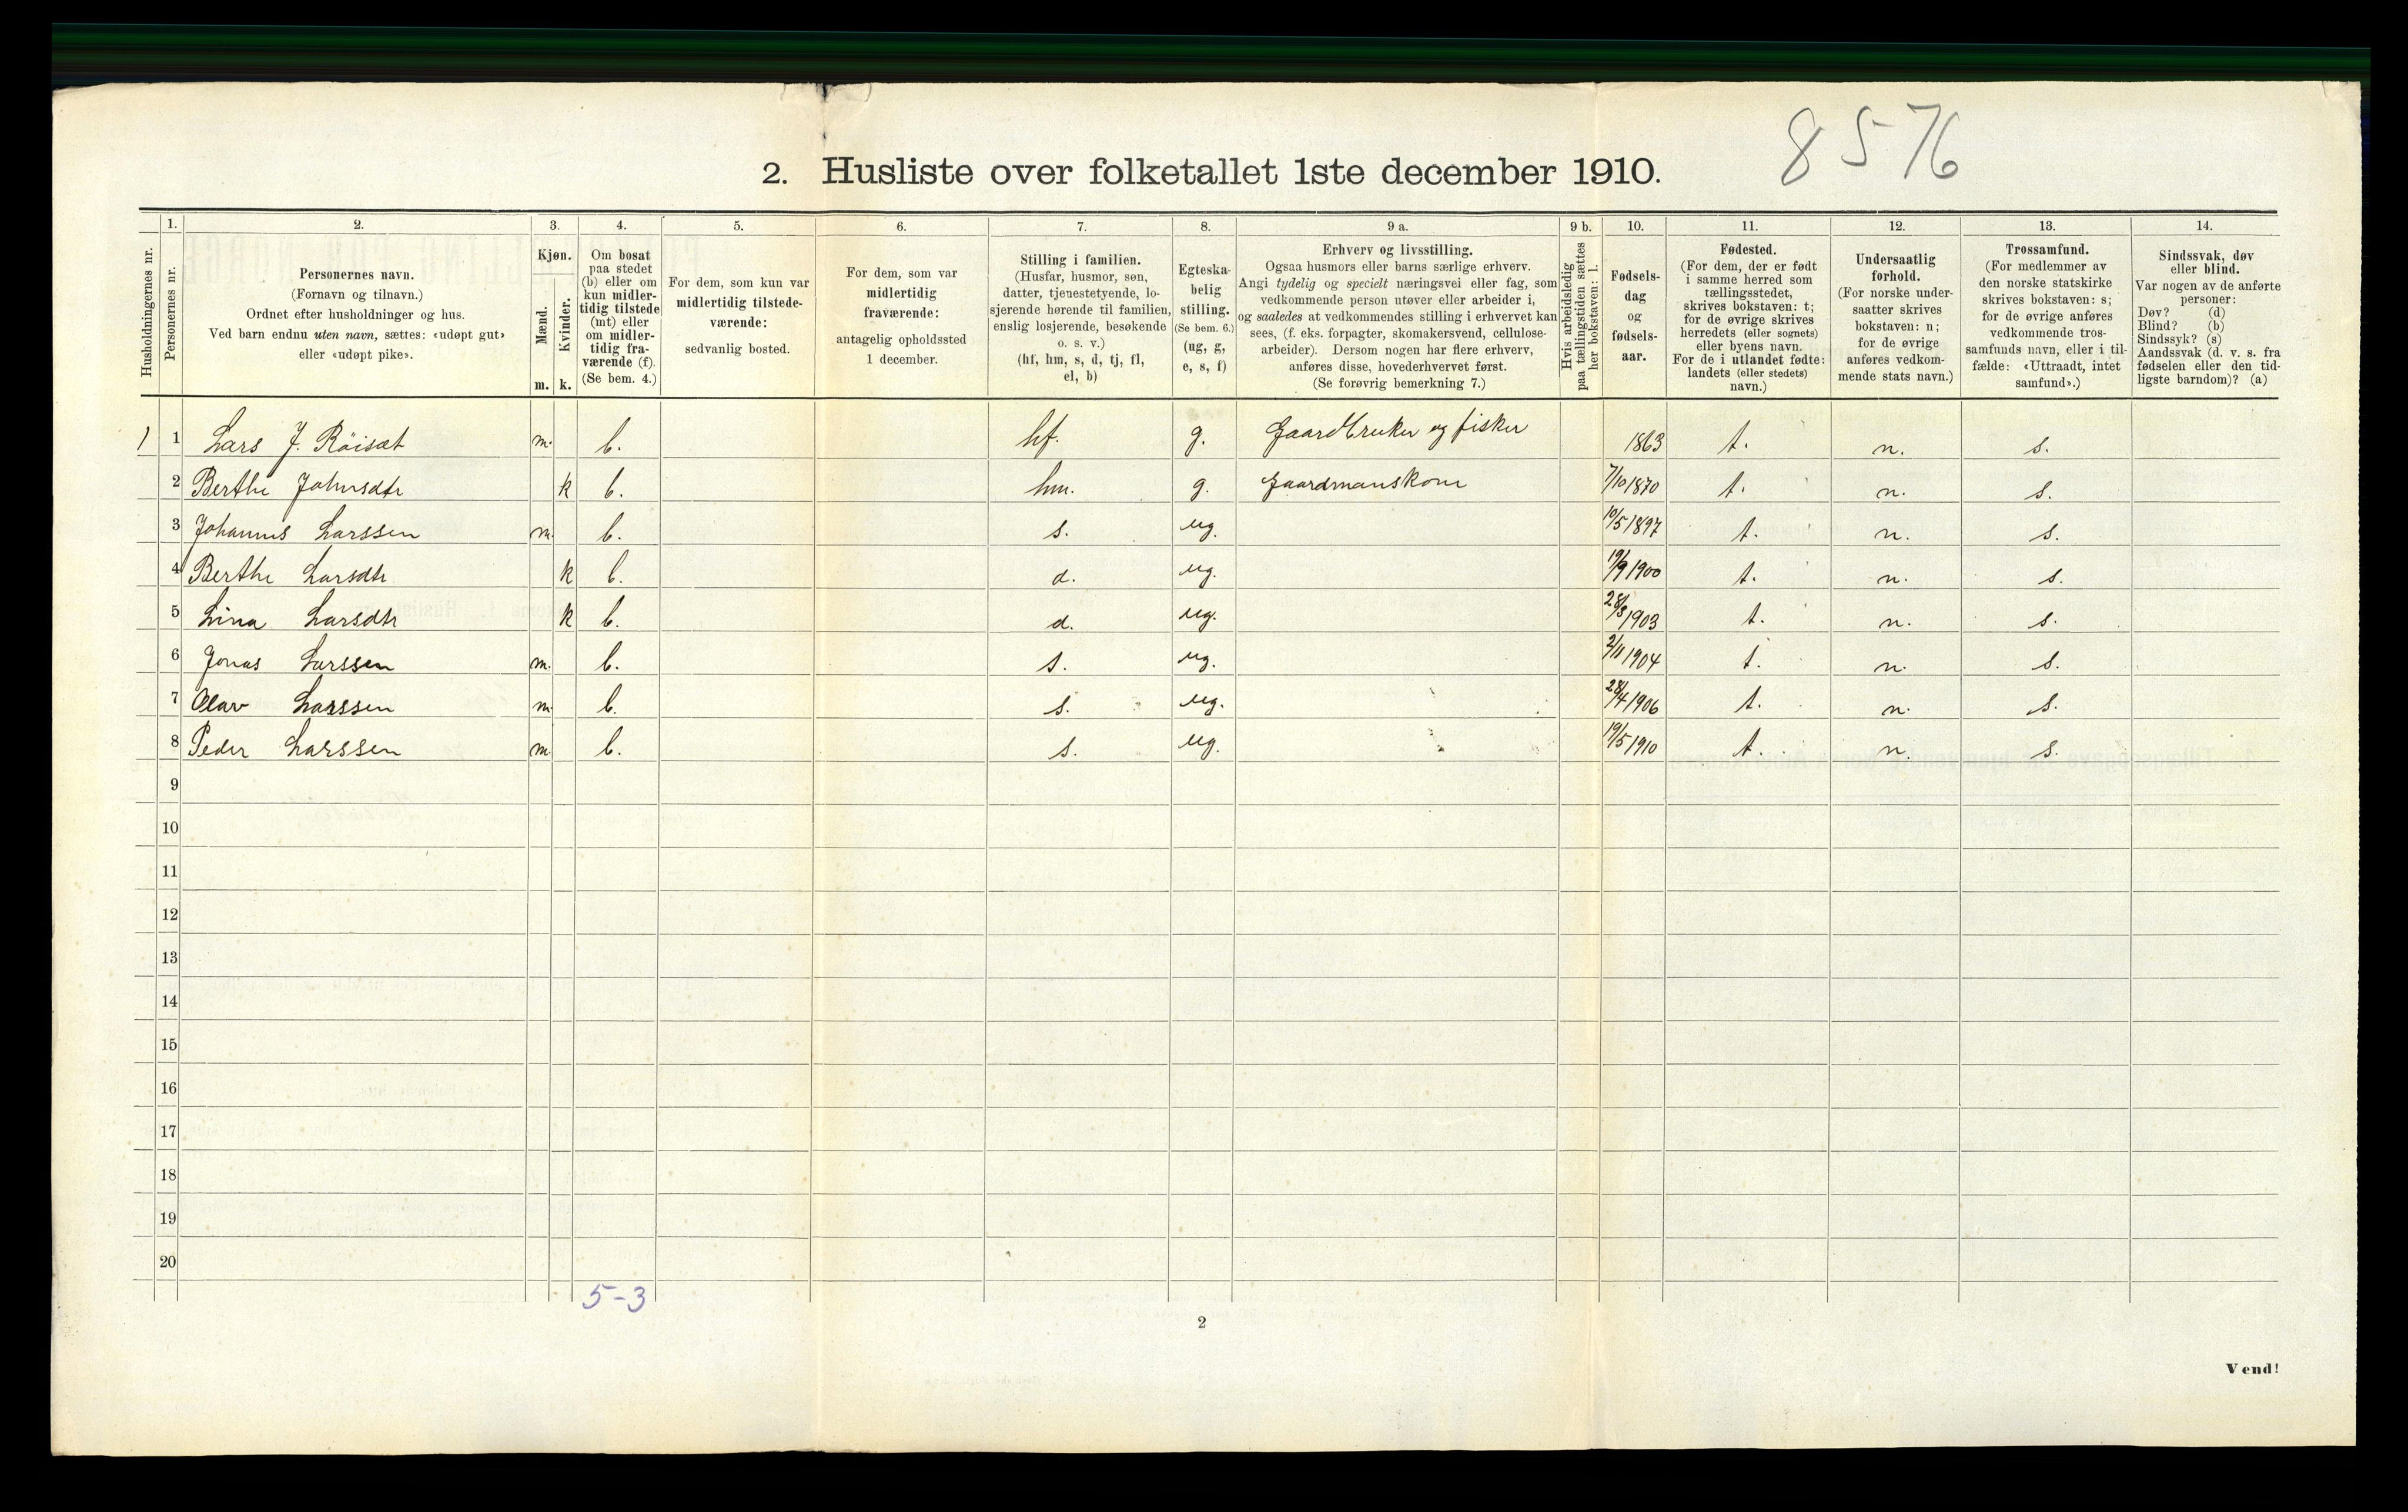 8576
2. Husliste over folketallet 1ste december 1910.
Husholdningernes nr.
1.
Personernes nr.
2.
Personernes navn.
(Fornavn og tilnavn.)
Ordnet efter husholdninger og hus.
Ved barn endnu uten navn, sættes: «udøpt gut»
eller «udøpt pike».
3.
Kjøn.
Mænd.
m.
Kvinder.
k.
4.
Om bosat
paa stedet
(b) eller om
kun midler-
tidig tilstede
(mt) eller
om midler-
tidig fra-
værende (f).
(Se bem. 4.)
5.
For dem, som kun var
midlertidig tilstede-
værende:
sedvanlig bosted.
6.
For dem, som var
midlertidig
fraværende:
antagelig opholdssted
1 december.
7.
Stilling i familien.
(Husfar, husmor, søn,
datter, tjenestetyende, lo-
sjerende hørende til familien,
enslig losjerende, besøkende
o. s. v.)
(hf, hm, s, d, tj, fl,
el, b)
8.
Egteska-
belig
stilling.
(Se bem. 6.)
(ug, g,
e, s, f)
9 a.
Erhverv og livsstilling.
Ogsaa husmors eller barns særlige erhverv.
Angi tydelig og specielt næringsvei eller fag, som
vedkommende person utøver eller arbeider i,
og saaledes at vedkommendes stilling i erhvervet kan
sees, (f. eks. forpagter, skomakersvend, cellulose-
arbeider). Dersom nogen har flere erhverv,
anføres disse, hovederhvervet først.
(Se forøvrig bemerkning 7.)
9 b.
Hvis arbeidsledig
paa tællingstiden sættes
her bokstaven: l.
10.
Fødsels-
dag
og
fødsels-
aar.
11.
Fødested.
(For dem, der er født
i samme herred som
tællingsstedet,
skrives bokstaven: t;
for de øvrige skrives
herredets (eller sognets)
eller byens navn.
For de i utlandet fødte:
landets (eller stedets)
navn.)
12.
Undersaatlig
forhold.
(For norske under-
saatter skrives
bokstaven: n;
for de øvrige
anføres vedkom-
mende stats navn.)
13.
Trossamfund.
(For medlemmer av
den norske statskirke
skrives bokstaven: s;
for de øvrige anføres
vedkommende tros-
samfunds navn, eller i til-
fælde: «Uttraadt, intet
samfund».)
14.
Sindssvak, døv
eller blind.
Var nogen av de anførte
personer:
Døv? (d)
Blind? (b)
Sindssyk? (s)
Aandssvak (d. v. s. fra
fødselen eller den tid-
ligste barndom)? (a)
1 1 Lars J. Röisæt m. b. hf. g. Gaardbruker og fisker 1863 t. n. s.
2 Berthe Johnsdtr k b. hm. g. Gaardmanskone 7/10 1870 t. n. s.
3 Johannes Larssen m. b. s. ug. 10/5 1897 t. n. s.
4 Berthe Larsdtr k b. d. ug. 19/9 1900 t. n. s.
5 Lina Larsdtr k b. d. ug. 28/8 1903 t. n. s.
6 Jonas Larssen m. b. s. ug. 2/11 1904 t. n. s.
7 Olav Larssen m. b. s. ug. 28/4 1906 t. n. s.
8 Peder Larssen m. b. s. ug. 19/5 1910 t. n. s.
9
10
11
12
13
14
15
16
17
18
19
20
5-3
2
Vend!